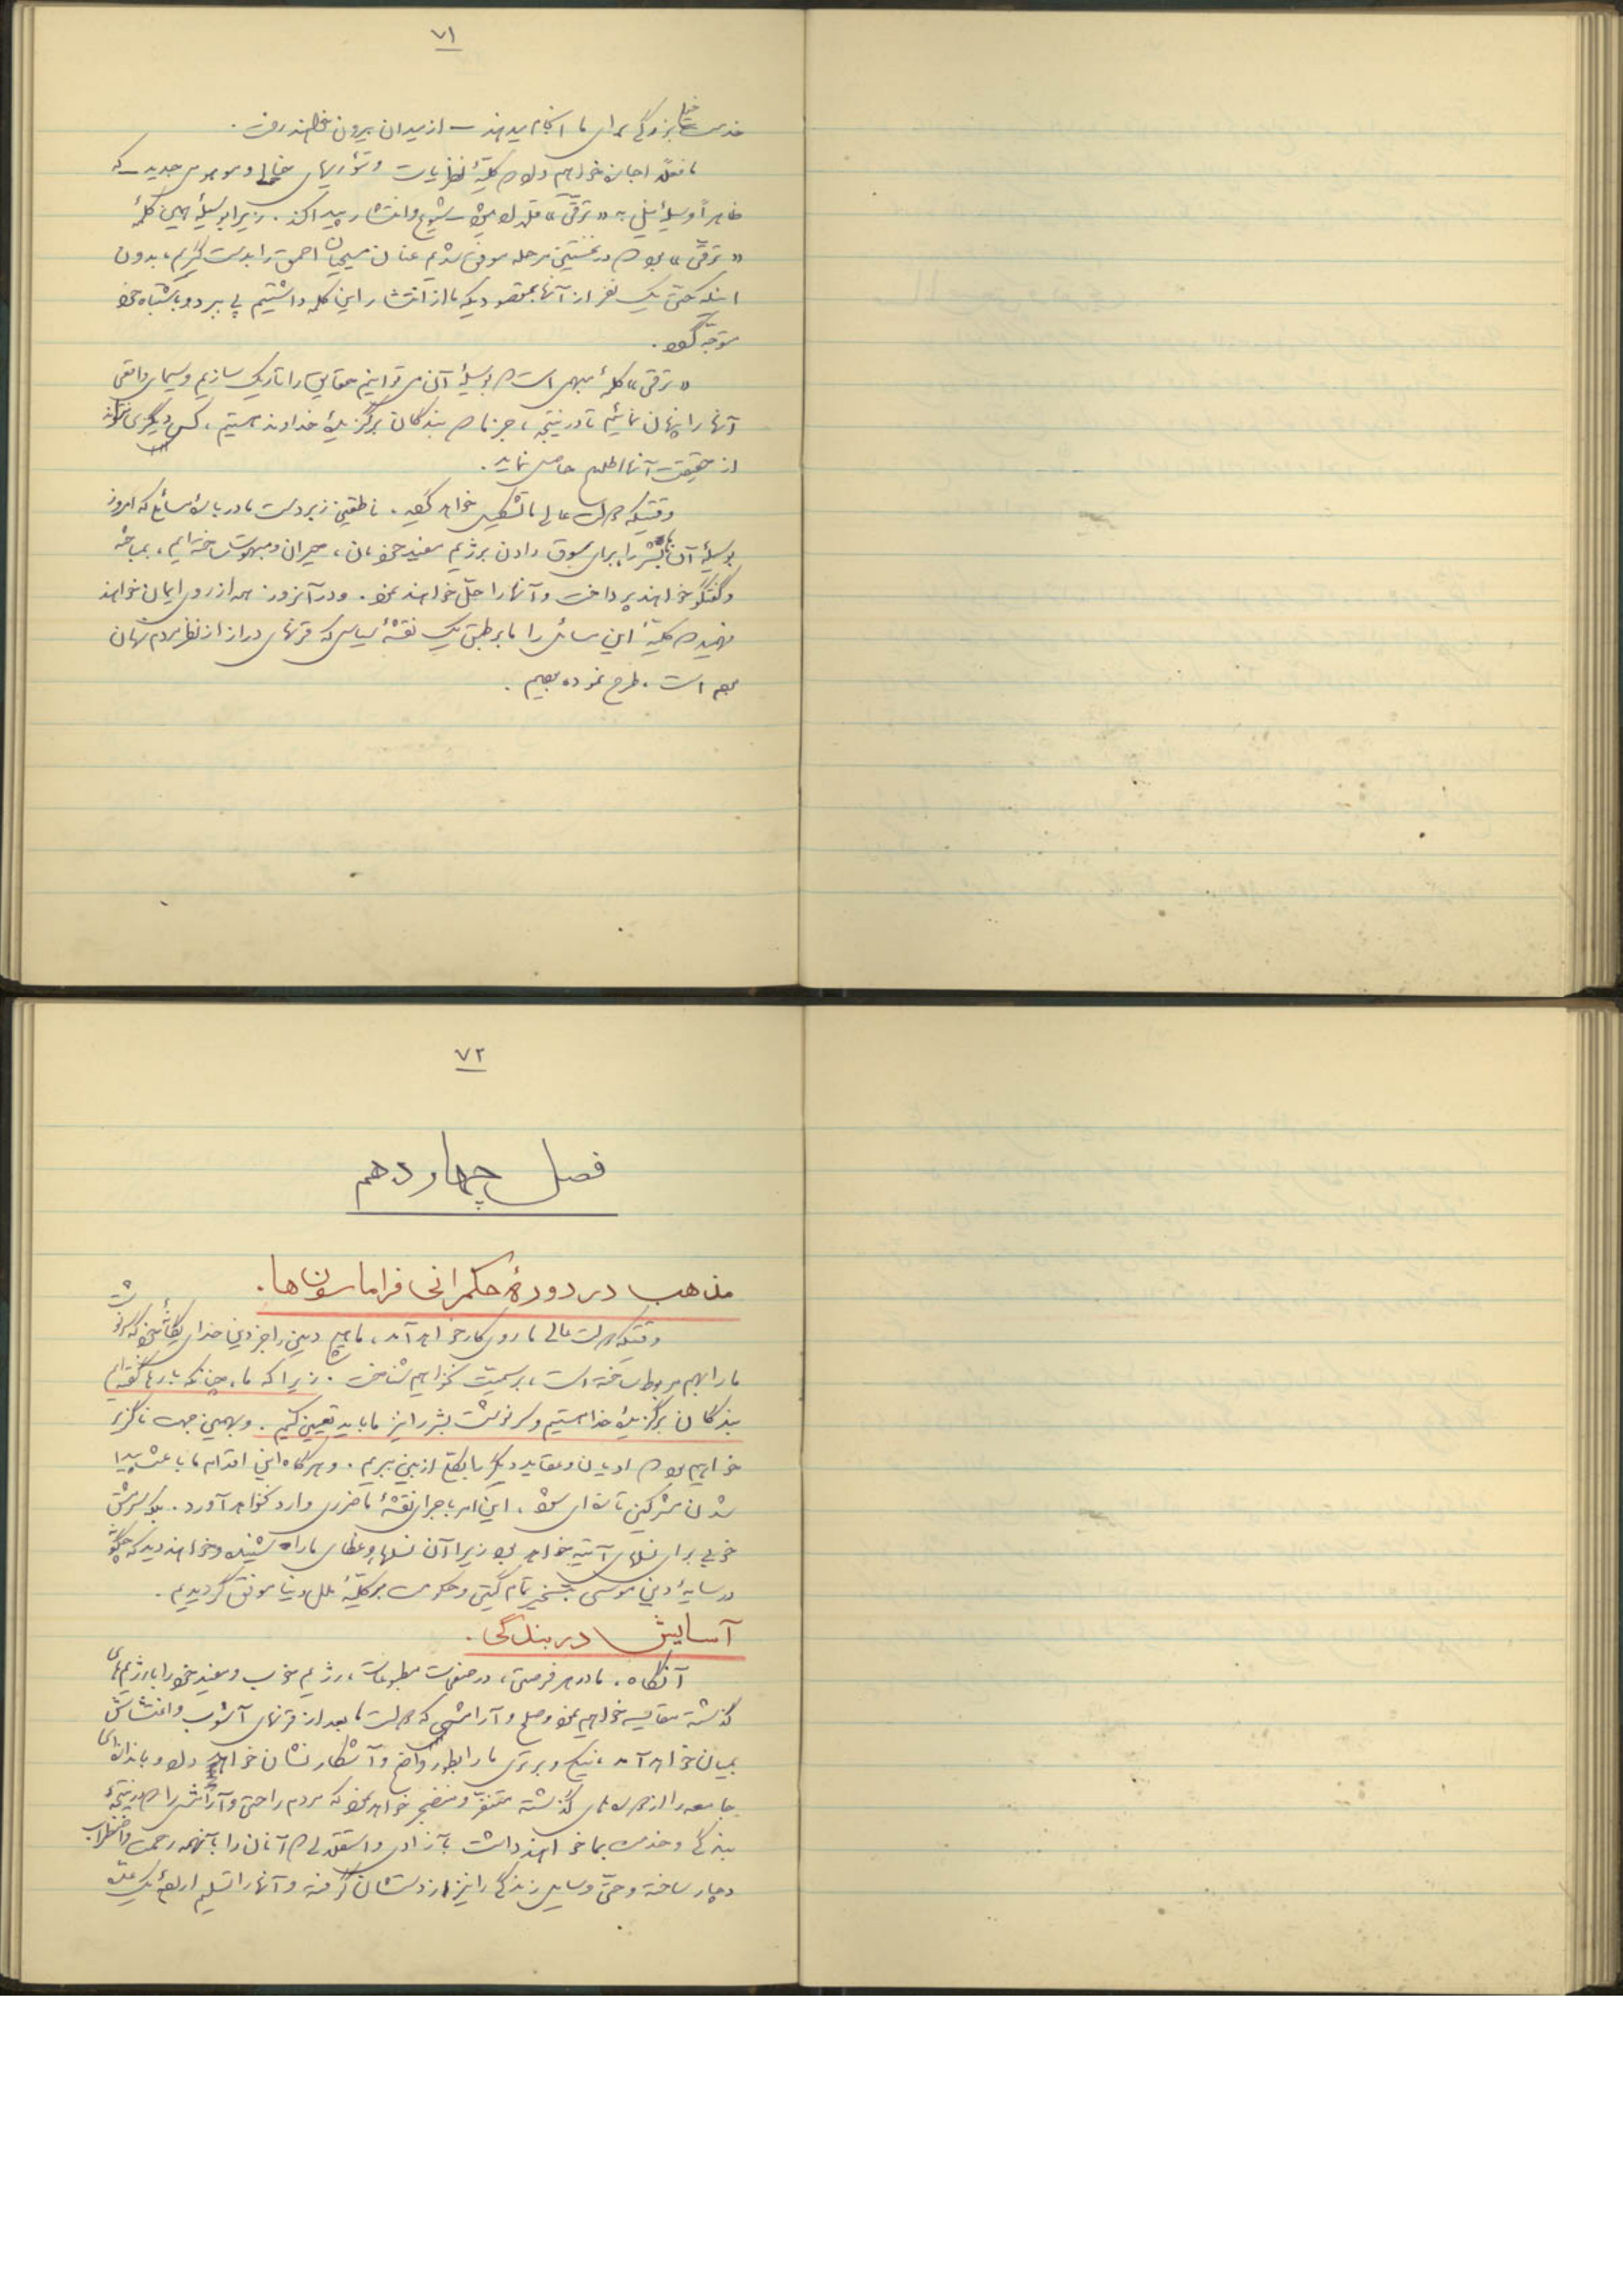 ۷۱
خدمت بزرگی برای ما انجام میدهند – از میدان بیرون نخواهند رفت.
ما فعلاً اجازه خواهیم داد که کلیهٔ نظریات و تئوریهای خیالی و موهومی جدید – که
ظاهراً وسیلهٔ نیل به «ترقّی» قلمداد میشود – شیوع و انتشار پیدا کند. زیرا بوسیلهٔ همین کلمهٔ
«ترقّی» بود که در نخستین مرحله موفق شدیم عنان مسیحیان احمق را بدست گیریم، بدون
اینکه حتّی یک نفر از آنها بمقصودیکه ما از انتشار این کلمه داشتیم پی ببرد و باشتباه خود
متوجّه گردد.
«ترقّی» کلمهٔ مبهمی است که بوسیلهٔ آن می توانیم حقایق را تاریک سازیم و سیمای واقعی
آنها را پنهان نمائیم تا در نتیجه، جز ما که بندگان برگزیدهٔ خداوند هستیم، کس دیگری نتواند
از حقیقت آنها اطلاع حاصل نماید.
وقتیکه دولت عالی ما تشکیل خواهد گردید، ناطقین زبردست ما دربارهٔ مسائلی که امروز
بوسیلهٔ آنها بشر را برای سوق دادن برژیم مفید خودمان، حیران و مبهوت ساخته ایم، بمباحثه
و گفتگو خواهند پرداخت و آنها را حلّ خواهند نمود. و در آنروز همه از روی ایمان خواهند
فهمید که کلیهٔ این مسائل را ما بر طبق یک نقشهٔ سیاسی که قرنهای دراز از نظر مردم نهان
بوده است، طرح نموده بودیم.
۷۲
فصل چهاردهم
مذهب در دورهٔ حکمرانی فراماسون ها.
وقتیکه دولت عالی ما روی کار خواهد آمد، ما هیچ دینی را جز دین خدای یگانهٔ خود که سرنوشت
ما را بهم مربوط ساخته است، برسمیّت نخواهیم شناخت. زیرا که ما، چنانکه بارها گفته ایم
بندگان برگزیدهٔ خدا هستیم و سرنوشت بشر را نیز ما باید تعیین کنیم. و بهمین جهت ناگزیر
خواهیم بود که ادیان و عقاید دیگر را بکلّی از بین ببریم. و هرگاه این اقدام ما باعث پیدا
شدن مشرکین تازه ای شود، این امر باجرای نقشهٔ ما ضرری وارد نخواهد آورد. بلکه سرمشق
خوبی برای نسلهای آتیه خواهد بود زیرا آن نسلها وعظهای ما را شنیده و خواهند دید که چگونه
در سایهٔ دین موسی بتسخیر تمام گیتی و حکومت بر کلیهٔ ملل دنیا موفق گردیدیم.
آسایش در بندگی.
آنگاه، ما در هر فرصتی، در صفحات مطبوعات، رژیم خوب و مفید خود را با رژیم های
گذشته مقایسه خواهیم نمود و صلح و آرامشی که دولت ما بعد از قرنهای آشوب و اغتشاش
بمیان خواهد آمد، نیکی و برتری ما را بطور واضح و آشکار نشان خواهد داد و باندازه ای
جامعه را از دولتهای گذشته متنفر و منضجر خواهد نمود که مردم راحتی و آرامشی را که در نتیجهٔ
بندگی و خدمت بما خواهند داشت بآزادی و استقلالی که آنان را بآنهمه زحمت و اضطراب
دچار ساخته و حتّی وسایل زندگی را نیز از دستشان گرفته و آنها را تسلیم ارادهٔ یک عدّه